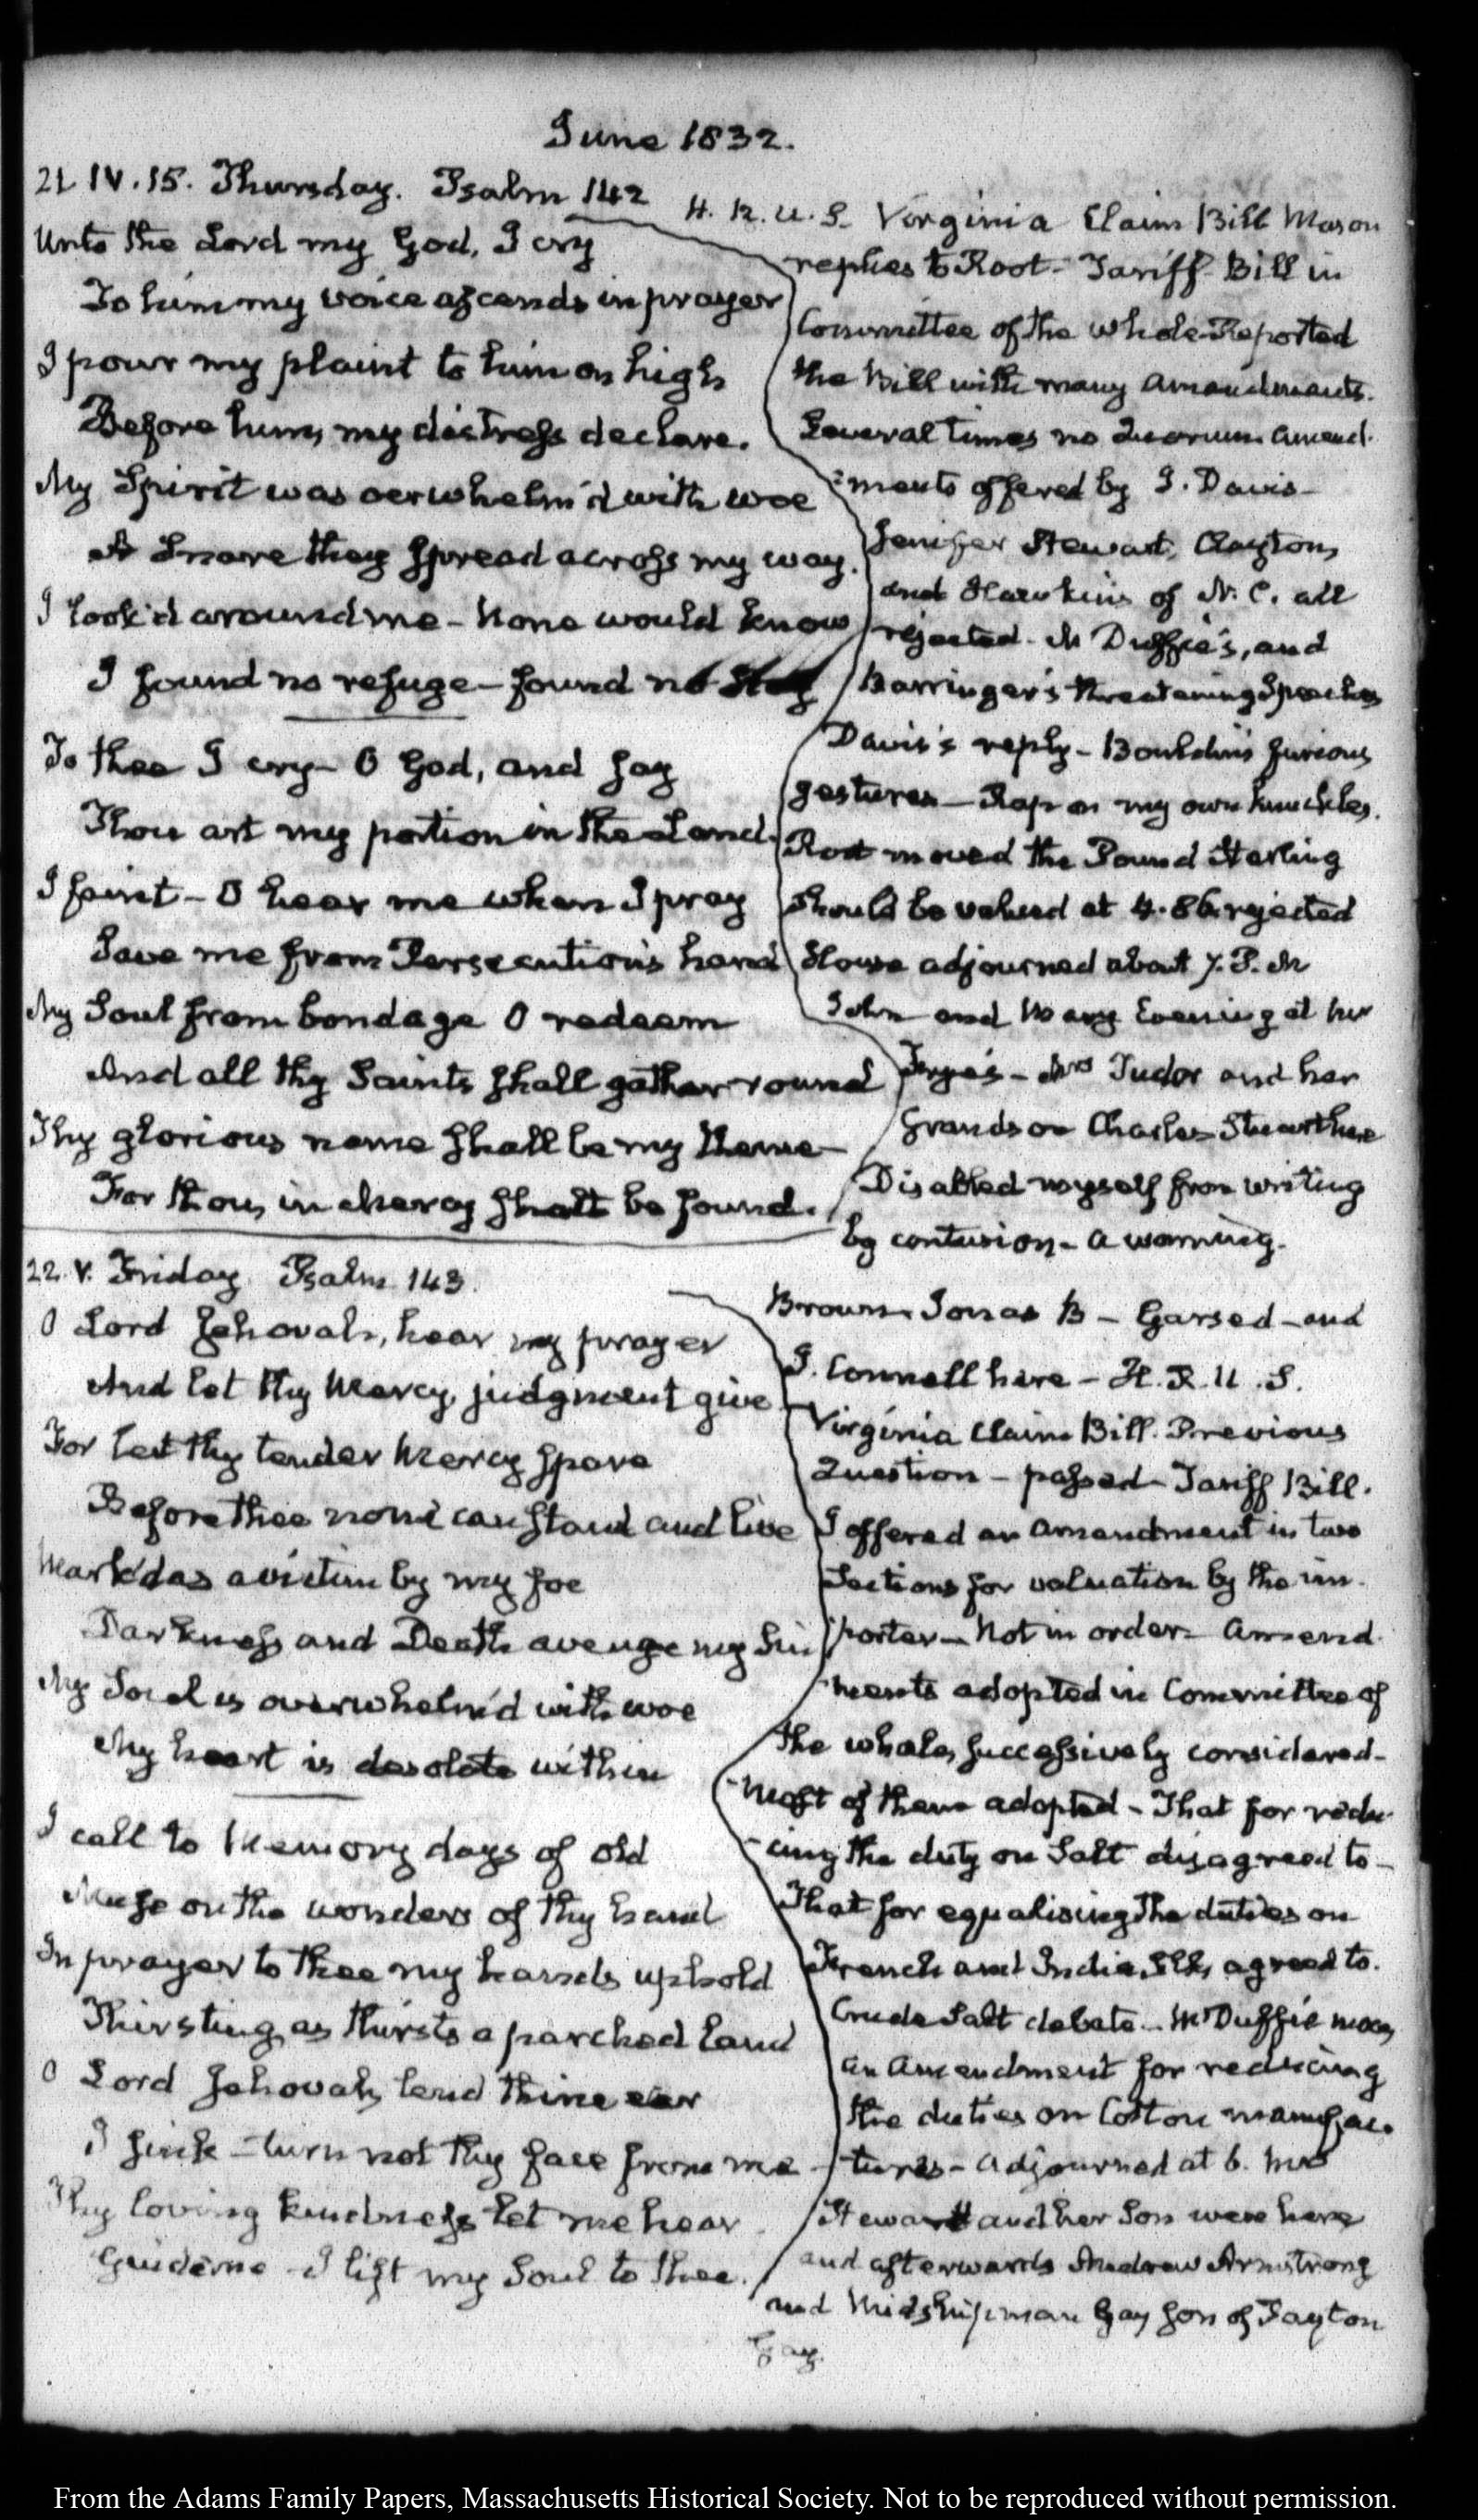 June 1832.
21 IV.15. Thursday. Psalm 142
Unto the Lord my God, I cry
To him my voice ascends in prayer
I pour my plaint to him on high
Before him, my distress declare.
My Spirit was oerwhelm'd with woe
A Snare they spread across my way.
I look'd around me - None would know
I found no refuge - found no stay
To thee I cry - O God, and say
Thou art my portion in the Land.
I faint - O hear me when I pray
Save me from Persecution's hand
My Soul from bondage O redeem
And all thy Saints shall gather round
Thy glorious name shall be my theme -
For thou, in Mercy shalt be found.
H. R. U. S. Virginia Claim Bill Mason
replies to Root - Tariff Bill in
Committee of the whole - Reported
the Bill with many amendments.
Several times no Quorum. Amend-
ments offered by J. Davis -
Jenifer Stewart, Clayton,
and Hawkins of N. C. all
rejected - McDuffie's, and
Barringer's threatening Speeches
Davis's reply - Bouldin's furious
gestures - Rap on my own knuckles.
Root moved the Pound Sterling
should be valued at 4.86 rejected
House adjourned about 7. P. M
John and Mary Evening at her
- Mrs Tudor and her
Grandson Charles Stewart here
Disabled myself from writing
by contusion - a warning.
22. V. Friday. Psalm 143.
O Lord Jehovah, hear my prayer
And let thy Mercy, judgment give
For let thy tender Mercy spare
Before thee none can stand and live
Mark'd as a victim by my foe
Darkness and Death avenge my Sin
My Soul is overwhelm'd with woe
My heart is desolate within
I call to Memory days of old
Muse on the wonders of thy hand
In prayer to thee my hands uphold
Thirsting as thirsts a parched land
O Lord Jehovah, lend thine ear
I sink - turn not thy face from me -
Thy loving kindness let me hear
Guide me - I lift my Soul to thee.
Brown. Jonas B - Garsed - and
J. Connell here - H. R. U. S.
Virginia Claim Bill. Previous
Question - passed - Tariff Bill.
I offered an amendment in two
Sections for valuation by the im-
porter - Not in order - Amend-
ments adopted in Committee of
the whole, successively considered -
Most of them adopted - That for redu-
cing the duty on Salt disagreed to -
That for equalising the duties on
French and India Silks, agreed to.
Crude Salt debate - McDuffie moves
an amendment for reducing
the duties on Cotton manufac-
tures - Adjourned at 6. Mrs
Stewart and her Son were here
and afterwards Andrew Armstrong
and Midshipman Gay son of Payton
Gay.
From the Adams Family Papers, Massachusetts Historical Society. Not to be reproduced without permission.